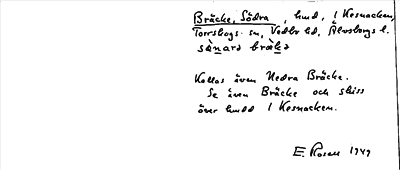 Bräcke, Södra, hmd, i Kesnacken,
Torsbys sn, Vedbo hd, Älvsborgs l.
Kallas även Nedra Bräcke.
Se även Bräcke och skiss
över hmdd i Kesnacken.
E. Rosell 1949